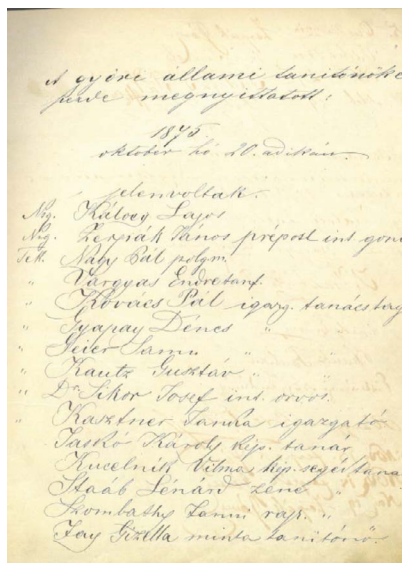 A győri állami tanítónőké
pezde megnyittatott:
1875
október hó 20.adikán.
Jelenvoltak.
Ngs. Kálóczy Lajos
Ngs. Zerpák János prépost int. gond
Tek. Nagy Pál polgm.
" Vargyas Endre tanf.
" Kovács Pál igazg. tanácstag
" Gyapay Dénes "
" Geier Samu "
" Kautz Gusztáv "
" Dr. Sikor József int. orvos.
" Kasztner Janka igazgató
Jaskó Károly kép. tanár
Kucelnik Vilmos kép. segédtana
Staáb Lénárd zene "
Szombathy Fanni rajz. "
Fay Gizella minta tanítónő.